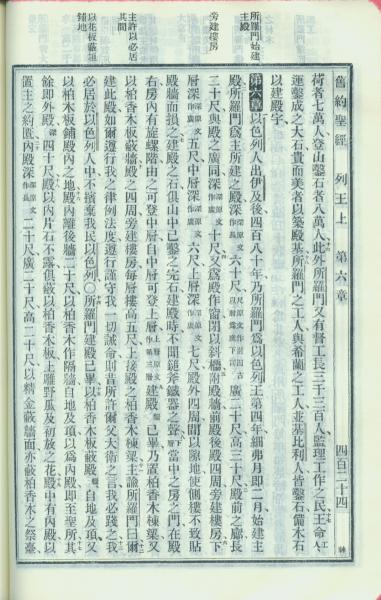 所羅門始建
主殿
旁建樓房
主許以必居
其間
以花板蔽垣
鋪地
舊約聖經 列王上 第六章 四百二十四
荷者七萬人登山鑿石者八萬人此外所羅門又有督工長三千三百人監理工作之民王命工人
運鑿成之大石貴而美者以築殿基所羅門之工人與希蘭之工人並基比利人皆鑿石備木石
以建殿宇
第六章以色列人出伊及後四百八十年乃所羅門爲以色列王第四年細弗月即二月始建主
殿所羅門爲主所建之殿深深原文作長六十尺廣二十尺高三十尺殿前之廊長
二十尺與殿之廣同深十尺又爲殿作窗閉以斜櫺附殿牆前殿後殿四周旁建樓房下
層深五尺中層深六尺上層深七尺殿外四周閒以隙地使側樓不致貼
殿牆而損之建殿之石俱山中已鑿之完石建殿時不聞鎚斧鐵器之聲下層當中之房之門在殿
右房內有旋螺階由之可登中層自中層可登上層建殿已畢乃置柏香木棟梁又
以柏香木板蔽牆殿之四周旁建樓房每層樓高五尺上接殿之柏香木棟梁主諭所羅門曰爾
建此殿如爾遵行我之律例法度遵行謹守我一切誡命則昔所許爾父大衛之言我必踐之我
必居於以色列人中不擯棄我民以色列〇所羅門建殿已畢以柏香木板蔽殿自地及項又
以柏木板鋪殿內之地殿內離後牆二十尺以柏香木作隔牆自地及項以爲內殿即至聖所其
餘即外殿深四十尺殿以內片石不露俱蔽以柏香木板上雕野瓜及初放之花殿中有內殿以
置主之約匱內殿深二十尺廣二十尺高二十尺以精金蔽牆面亦蔽柏香木之祭臺